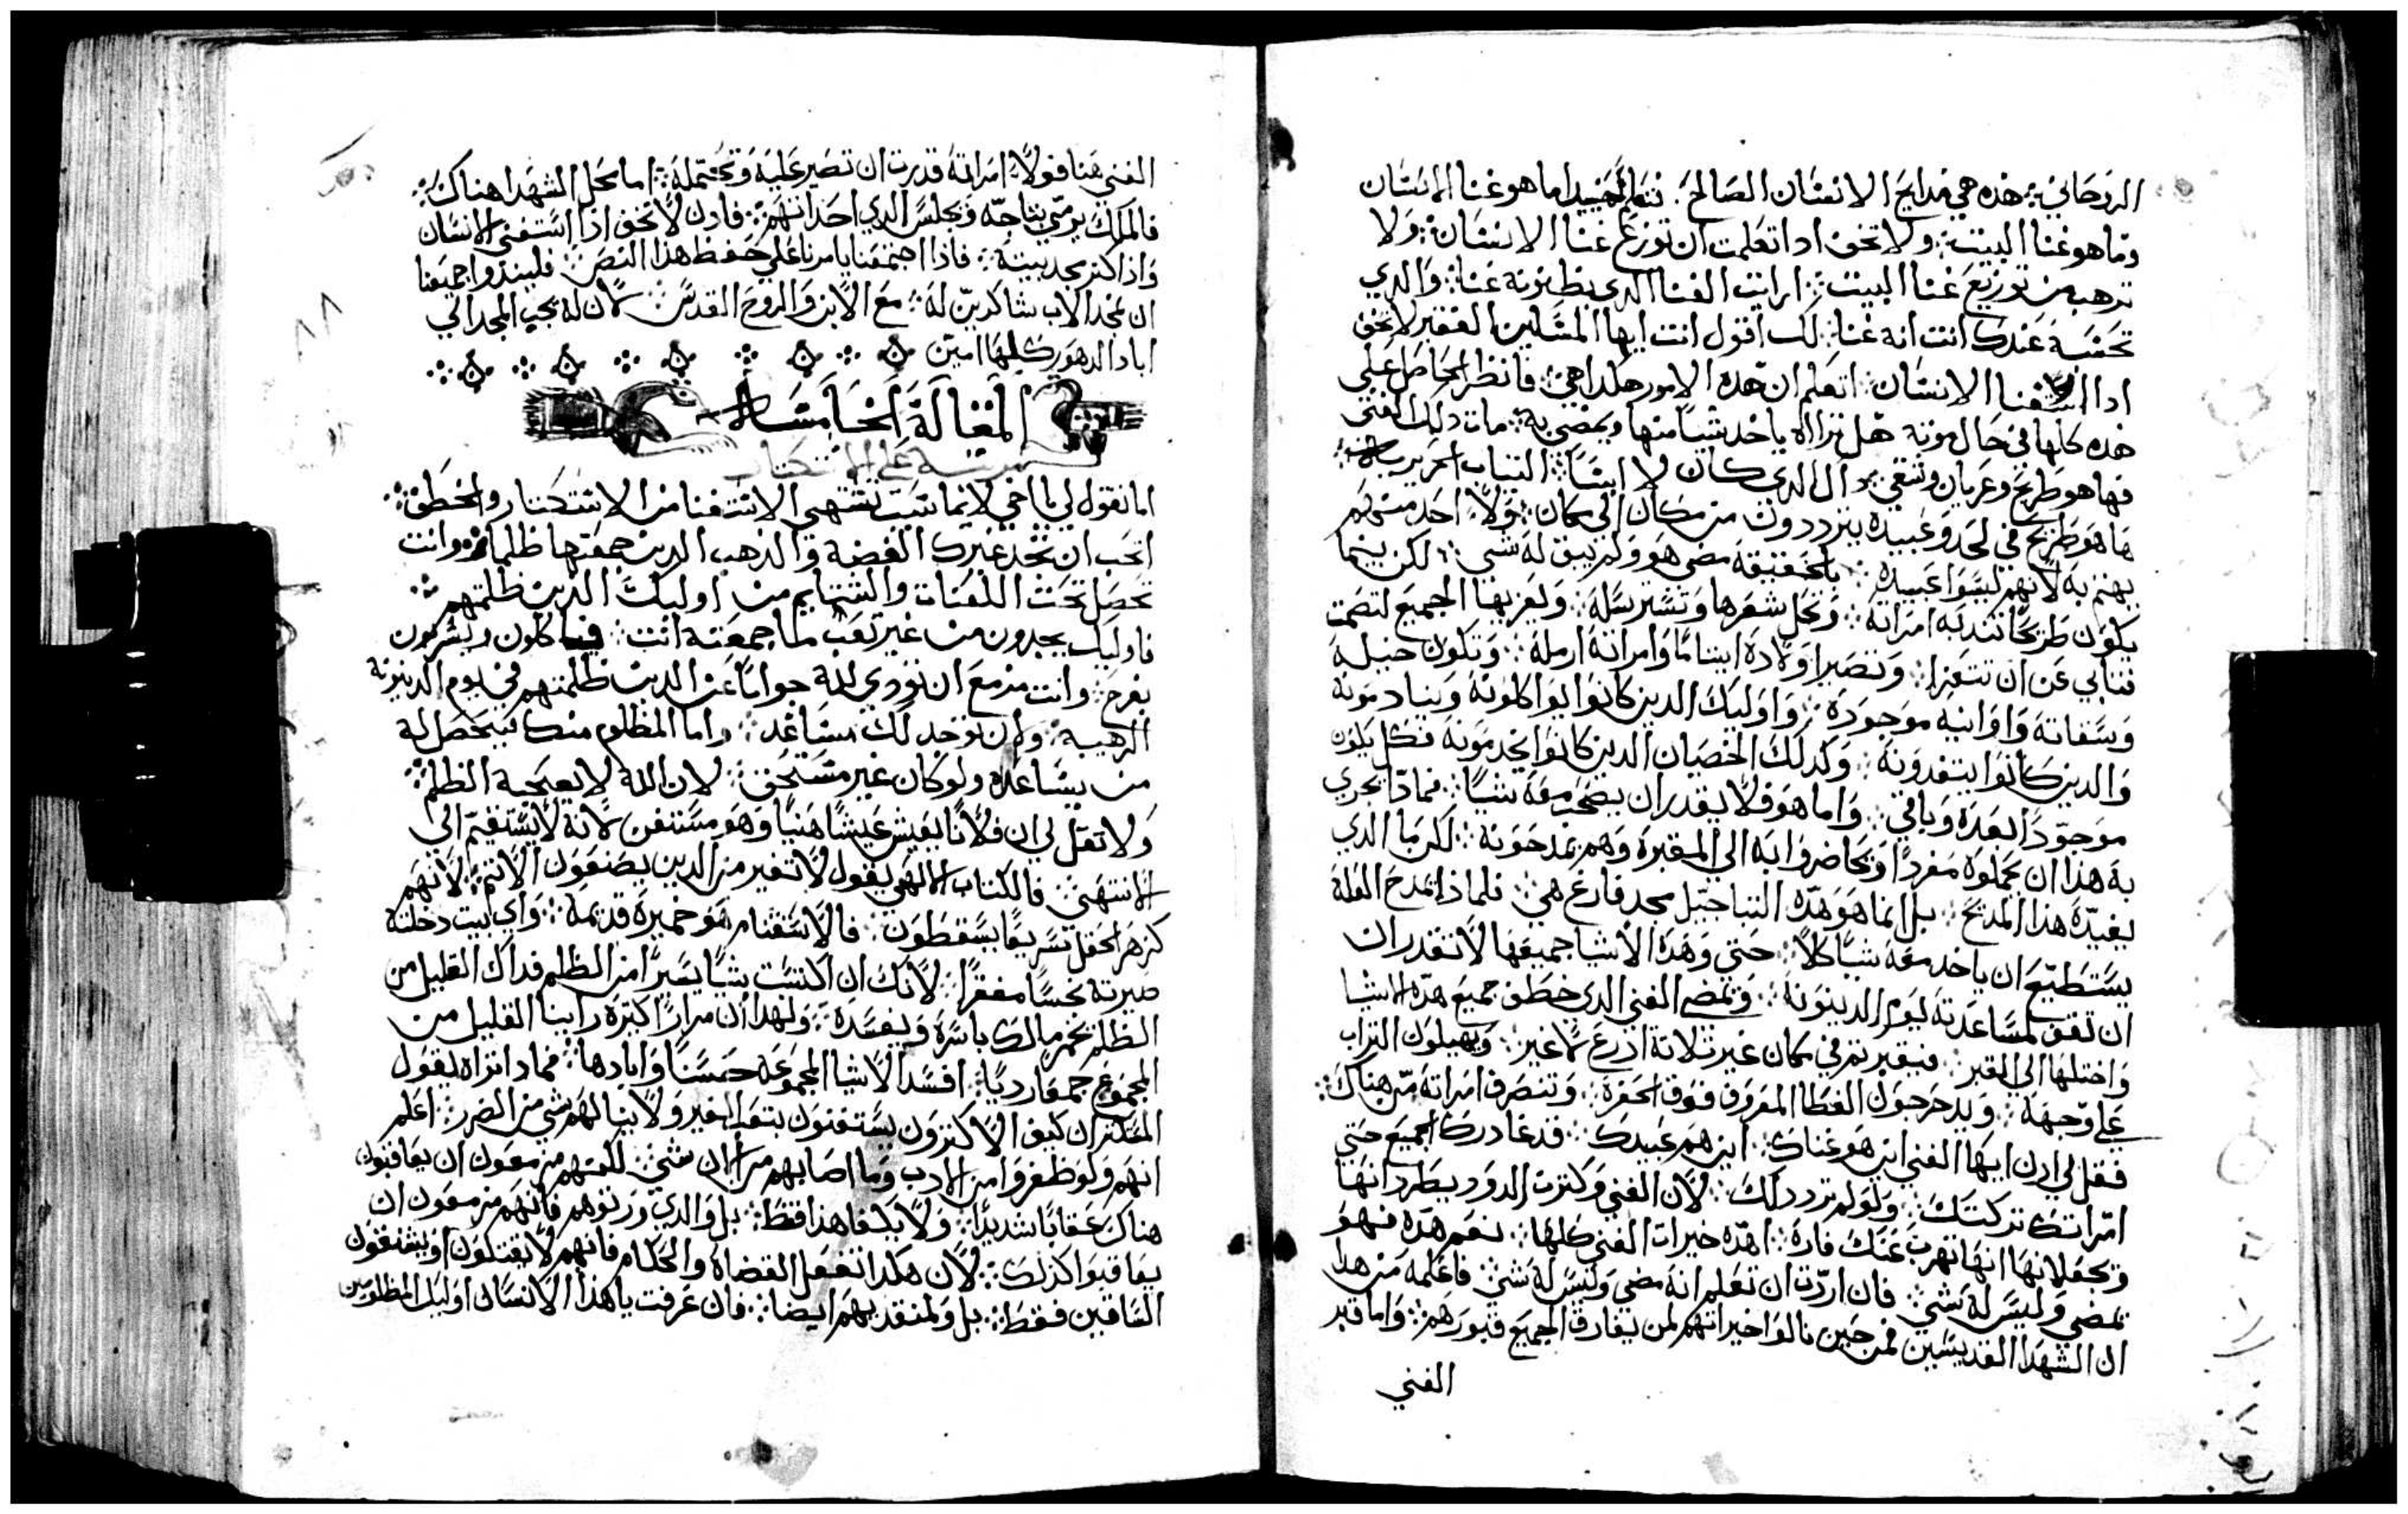 الروحاني ⁘ هذه هي مدايح الانسان الصالح . نتعلم جيدا ما هو غنا الانسان
وما هو غنا البيت ⁘ ولا تخف اذا تعلمت ان توزع غنا الانسان ⁘ ولا
ترهب من توزيع غنا البيت ⁘ ارايت الغنا الدي يظنونه غنا ⁘ والدي
تحسبه عندك انت انه غنا ⁘ لك اقول انت ايها المسكين الفقير لا تخف
ادا استغنا الانسان ⁘ اتعلم ان هده الامور هكدا هي ⁘ فانظر الحاصل على
هده كلها في حال موته هل تراه ياخد شيا منها ويمضي به ⁘ مات دلك الغني
فها هو طريح وعريان وشقي ⁘ الدي كان لابسا التياب الحريرية ⁘
ها هو طريح في لحد وعبيده يترددون من مكان الى مكان ⁘ ولا احد منهم
يهتم به لانهم ليسوا عبيده ⁘ بالحقيقة مضى هو ولم يبق له شي ⁘ لكن بينما
يكون طريحا تندبه امراته ⁘ وتحل شعرها وتشتر سله ⁘ ويعزيها الجميع لتصمت
فتابي عن ان تتعزا ⁘ وتصير اولاده ايتاما وامراته ارملة ⁘ وتكون خيله
وسقاته واوانيه موجودة ⁘ واوليك الدين كانوا يواكلونه وينادمونه
والدين كانوا يتغدونه ⁘ وكدلك الخصيان الدين كانوا يخدمونه فكل يكون
موجودا بعده وباقي ⁘ واما هو فلا يقدر ان يصحب معه شيا ⁘ فمادا يجري
به هذا ان يحملوه مفردا ويحاضروا به الى المقبرة وهم يمدحونه ⁘ لكن ما الدي
يفيده هذا المديح ⁘ بل انما هو هده التباجيل مجد فارغ هي ⁘ فلمادا يمدح العله
يستطيع ان ياخد معه شيا كلا ⁘ حتى وهده الاشيا جميعها لا تقدر ان
ان تقف لمساعدته ليوم الدينونة ⁘ ويمضي الغني الدي خطف جميع هده الاشيا
واختلها الى القبر ⁘ فيقبر ثم في مكان غير تلاتة ادرع لا غير ⁘ ويهيلون التراب
على وجهه ⁘ ويدحرجون الغطا المعروف فوق الحفرة ⁘ وتنصرف امراته من هناك ⁘
فقل لي ادن ايها الغني اين هو غناك ⁘ اين هم عبيدك ⁘ قد غادرك الجميع حتى
امراتك تركتك ⁘ ولو لم ترد دلك ⁘ لان الغني وكترت الدود يطردانها
ويجعلانها انها تهرب عنك فارة ⁘ اهده خيرات الغني كلها ⁘ نعم هده فهو
يمضي وليس له شي ⁘ فان اردت ان تعلم انه مضي وليس له شي ⁘ فاعلمه من هدا
ان الشهدا القديسين فمن حين نالوا خيراتهم لمن يفارق الجميع قبورهم ⁘ واما قبر
الغني
الغني هنا فولا امراته قدرت ان تصير عليه وتحتمله ⁘ اما محل الشهدا هناك ⁘
فالملك يرمي بتاجه ويجلس الدي احدانهم ⁘ فادن لا تخف اذا استغنى الانسان
واذا كتر مجد بيته ⁘ فاذا اجتمعنا يا مرنا على حفظ هذا النص ⁘ فليبدوا جميعنا
ان نمجد الاب شاكرين له ⁘ مع الابن والروح القدس ⁘ لان له يجب المجد الى
اباد الدهور كلها امين
المقالة الخامسة
على الاستكتار
اما تقول لي يا اخي لايما سبب تشتهي الاستغنا من الاستكتار والخطف ⁘
اتحب ان تخد غيرك الفضة والذهب الدين جمعتها ظلما ⁘ وانت
تحصل تحت اللعنات والشتايم من اوليك الدين ظلمتهم ⁘
فاوليك يجدون من غير تعب ما جمعته انت ⁘ فياكلون ويشربون
بفرح ⁘ وانت مزمع ان تودي لله جوابا عن الدين ظلمتهم في يوم الدينونة
الرهيبة ⁘ ولن توجد لك مساعد ⁘ واما المظلوم منك فيحصل له
من يساعده ولو كان غير مستحق ⁘ لان الله لا يعجبه الظلم ⁘
ولا تقل لي ان فلانا يعيش عيشا هنيا وهو مستغن لانه لا يستقيم الى
الانتهى ⁘ فالكتاب الالهي يقول لا تغير من الدين يصنعون الاتم ⁘ لانهم
كزهر الحقل سريعا يسقطون ⁘ فالاستغنام هو خميرة قديمة ⁘ واي بيت دخلته
صيرته نجسا مفقرا ⁘ لانك ان اكتسبت شيا يسيرا من الظلم فداك القليل من
الظلم يخمر مالك باسره ويفسده ⁘ ولهدا ان مرارا كتيرة راينا القليل من
المجموع جمعا رديا ⁘ افسد الاشيا المجموعه حسنا وابادها ⁘ فمادا تراه يقول
المقتدران كيف الاكترون يستغنون بتعب الغير ولا ينالهم شي من الضرر ⁘ اعلم
انهم ولو ظفروا من الادب وما اصابهم من شي ⁘ لكنهم مزمعون ان يعاقبون
هناك عقابا شديدا ⁘ ولا يكفا هذا فقط ⁘ بل والدي ورتوهم فانهم مزمعون ان
يعاقبوا كذلك ⁘ لان هكدا تفعل القضاة والحكام فانهم لا يقتلون او يشنقون
السارقين فقط ⁘ بل ولمنقديهم ايضا ⁘ فان عرفت يا هذا الانسان اوليك المظلومين